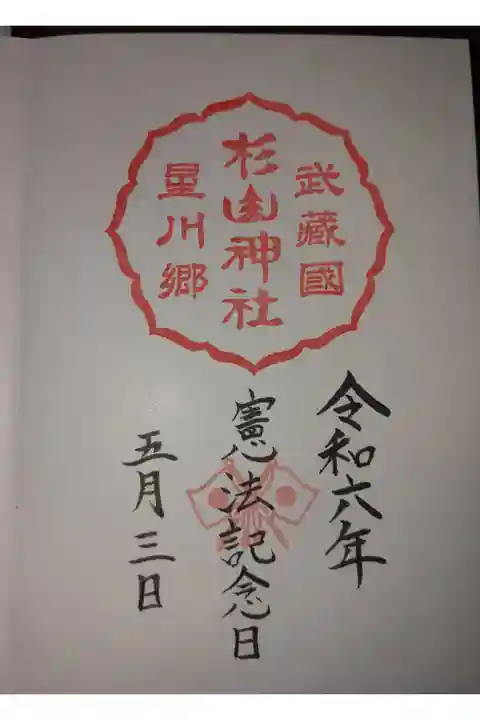 武藏國
杉山神社
星川郷
令和六年
憲法記念日
五月三日